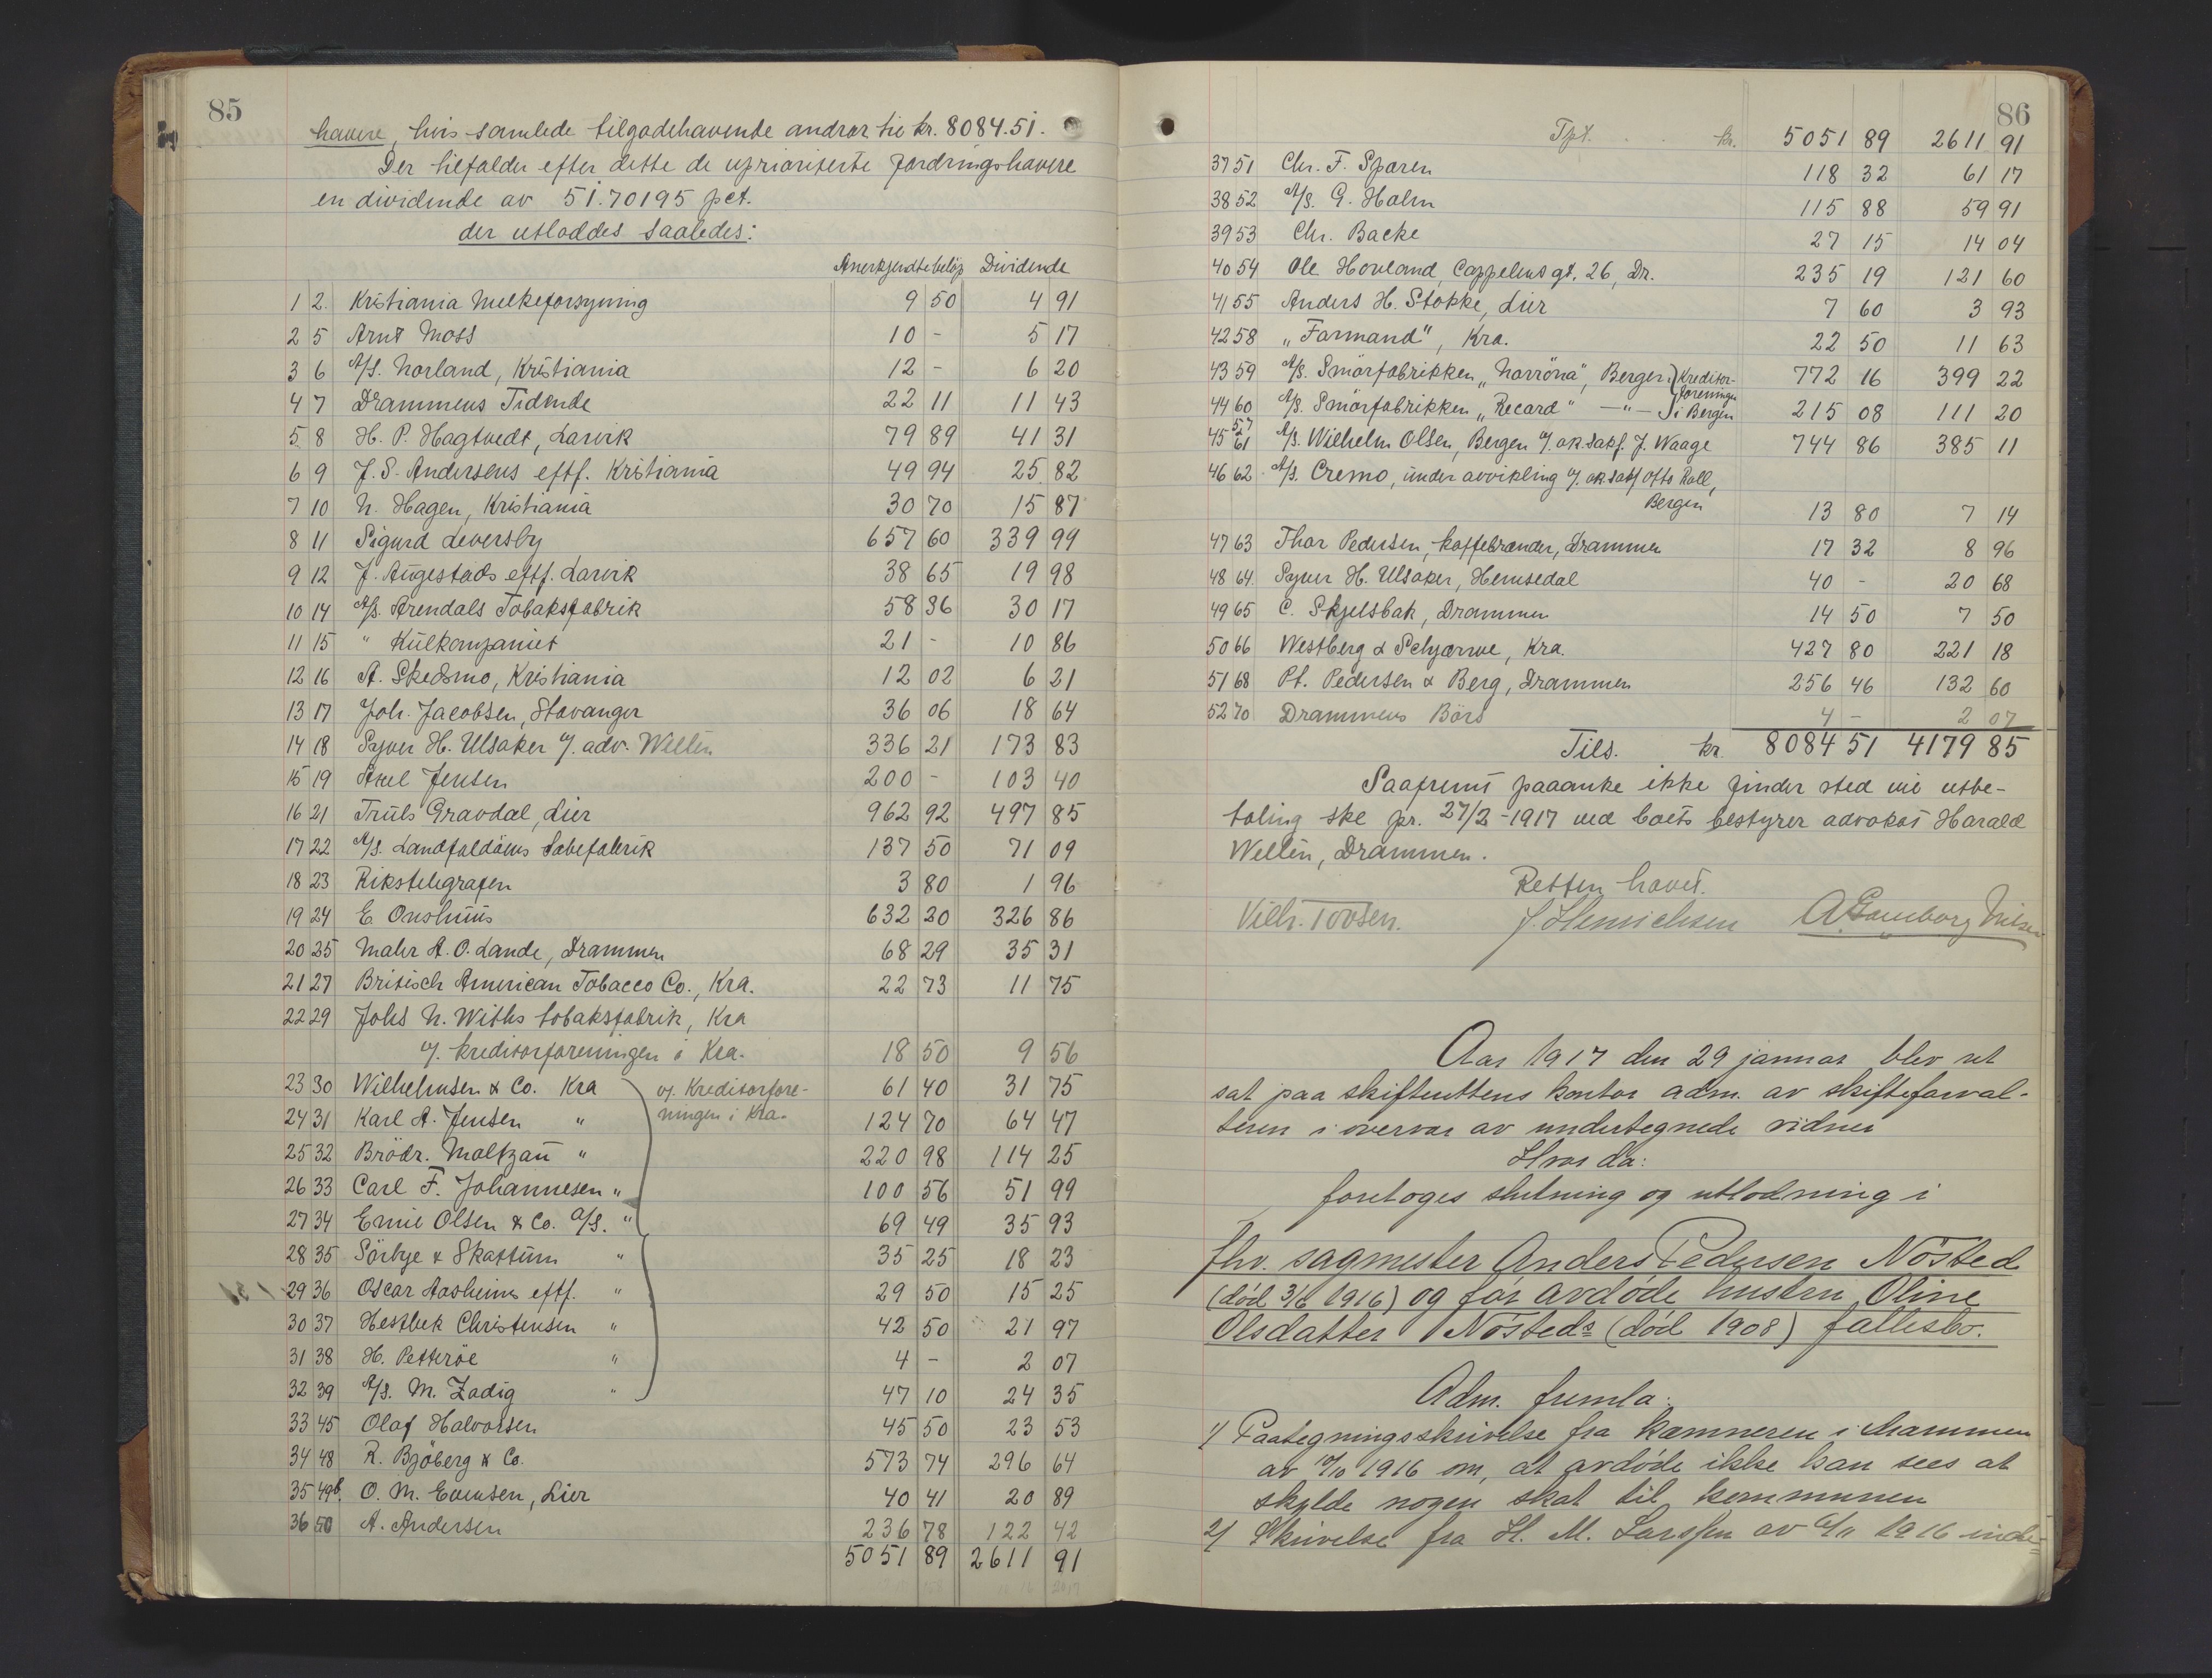 85
havere, hvis samlede tilgodehavende andrar til kr. 8084.51.
Der tilfalder efter dette de upriviterte fordringshavere
en dividende av 51.70195 pct.
der utloddes saaledes:
Anerkjendte beløp Dividende
1 2. Kristiania Melkeforsyning 9 50 4 91
2 5 Arnt Moss 10 - 5 17
3 6 A/S. Norland, Kristiania 12 - 6 20
4 7 Drammens Tidende 22 11 11 43
5 8 H. P. Hagtvedt, Larvik 79 89 41 31
6 9 J. S. Andersens eftf. Kristiania 49 94 25 82
7 10 N. Hagen, Kristiania 30 70 15 87
8 11 Sigurd Leversby 657 60 339 99
9 12 J. Augestads eftf. Larvik 38 65 19 98
10 14 A/S. Arendals Tobaksfabrik 58 36 30 17
11 15 " Kulkompaniet 21 - 10 86
12 16 A. Skedsmo, Kristiania 12 02 6 21
13 17 Joh. Jacobsen, Stavanger 36 06 18 64
14 18 Syver H. Ulsaker v/. adv. Wellén 336 21 173 83
15 19 Axel Jensen 200 - 103 40
16 21 Truls Gravdal, Lier 962 92 497 85
17 22 A/S. Landfaldöens Sæbefabrik 137 50 71 09
18 23 Rikstelegrafen 3 80 1 96
19 24 E. Onshuus 632 20 326 86
20 25 Maler A. O. Lande, Drammen 68 29 35 31
21 27 Britisch American Tobacco Co., Kra. 22 73 11 75
22 29 Johs N. Withs tobaksfabrik, Kra
v/. kreditorforeningen i Kra. 18 50 9 56
23 30 Wilhelmsen & Co. Kra v/. Kreditorfore- 61 40 31 75
24 31 Karl A. Jensen " ningen i Kra. 124 70 64 47
25 32 Brödr. Moltzau " 220 98 114 25
26 33 Carl F. Johannesen " 100 56 51 99
27 34 Emil Olsen & Co. A/S. " 69 49 35 93
28 35 Sörbye & Skattum " 35 25 18 23
29 36 Oscar Aasheims eftf. " 29 50 15 25
30 37 Hestbek Christensen " 42 50 21 97
31 38 H. Petteröe " 4 - 2 07
32 39 A/S. M. Zadig " 47 10 24 35
33 45 Olaf Halvorsen 45 50 23 53
34 48 R. Bjöberg & Co. 573 74 296 64
35 49b O. M. Evensen, Lier 40 41 20 89
36 50 A. Andersen 236 78 122 42
5051 89 2611 91
86
Tpt. kr. 5051 89 2611 91
37 51 Chr. F. Sparen 118 32 61 17
38 52 A/S. G. Holm 115 88 59 91
39 53 Chr. Backe 27 15 14 04
40 54 Ole Hovland, Cappelens gt. 26, Dr. 235 19 121 60
41 55 Anders H. Stokke, Lier 7 60 3 93
42 58 "Farmand", Kra. 22 50 11 63
43 59 A/S. Smörfabrikken "Norröna", Bergen. Kreditor- 772 16 399 22
foreningen
44 60 A/S. Smörfabrikken "Record" — " — i Bergen 215 08 111 20
57
45 61 A/S. Wilhelm Olsen, Bergen v/. o.r.sakf. J. Waage 744 86 385 11
46 62 A/S. Cremo, under avvikling v/. o.r.sakf Otto Roll,
Bergen 13 80 7 14
47 63 Thor Pedersen, kaffebrænder, Drammen 17 32 8 96
48 64 Syver H. Ulsaker, Hemsedal 40 - 20 68
49 65 C. Skjelsbæk, Drammen 14 50 7 50
50 66 Westberg & Schjærwe, Kra. 427 80 221 18
51 68 Pt. Pedersen & Berg, Drammen 256 46 132 60
52 70 Drammens Börs 4 - 2 07
Tils. kr. 8084 51 4179 85
Saafremt paaanke ikke finder sted vil utbe-
taling ske pr. 27/2-1917 ved boets bestyrer advokat Harald
Wellén, Drammen.
Retten hævet.
Vilh. Toosen. J. Hinrichsen A. Gamborg Nilsen
Aar 1917 den 29 januar blev ret
sat paa skifterettens kontor adm. av skifteforval-
teren i overvær av undertegnede vidner
Hvor da:
foretoges slutning og utlodning i
fhv. sagmester Anders Pedersen Nösted
(död 3/6 1916) og før avdøde hustru Oline
Olsdatter Nösteds (död 1908) fællesbo.
Adm. fremla:
1/ Paategningsskrivelse fra kæmneren i Drammen
av 1916 om, at avdøde ikke kan sees at
skylde nogen skat til kommunen
2/ Skrivelse fra H. M. Larssen av 1916 inde-